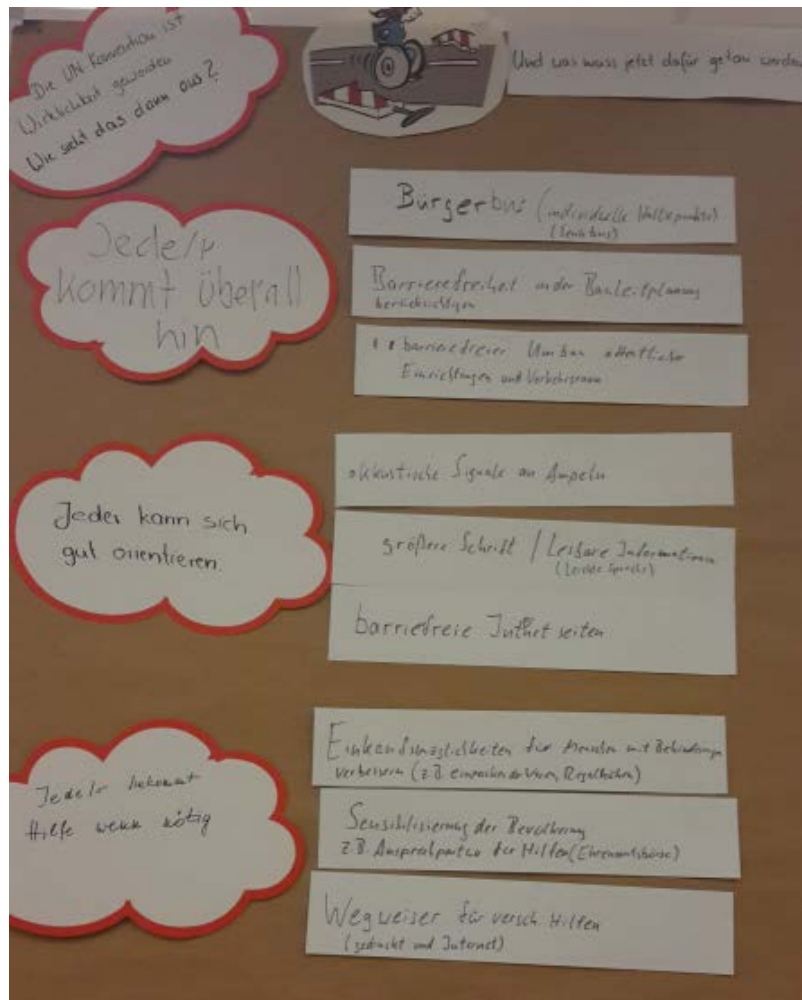 Die UN Konvention ist
Wirklichkeit geworden
Wie sieht das dann aus?
Und was muss jetzt dafür getan werden
Jede/r
kommt überall
hin
Bürgerbus (individuelle Haltepunkte)
Barrierefreiheit in der Bauleitplanung
berücksichtigen
barrierefreier Umbau öffentlicher
Einrichtungen und Verkehrsraum
Jeder kann sich
gut orientieren.
akkustische Signale an Ampeln
größere Schrift / Lesbare Informationen
(Leichte Sprache)
barriefreie Seiten
Jede/r bekommt
Hilfe wenn nötig
Einkaufsmöglichkeiten für Menschen mit Behinderungen
verbessern (z.B. der Waren, Regalhöhen)
Sensibilisierung der Bevölkerung
z.B. Ansprechpartner der Hilfen (Ehrenamtsbörse)
Wegweiser für versch. Hilfen
(gedruckt und Internet)